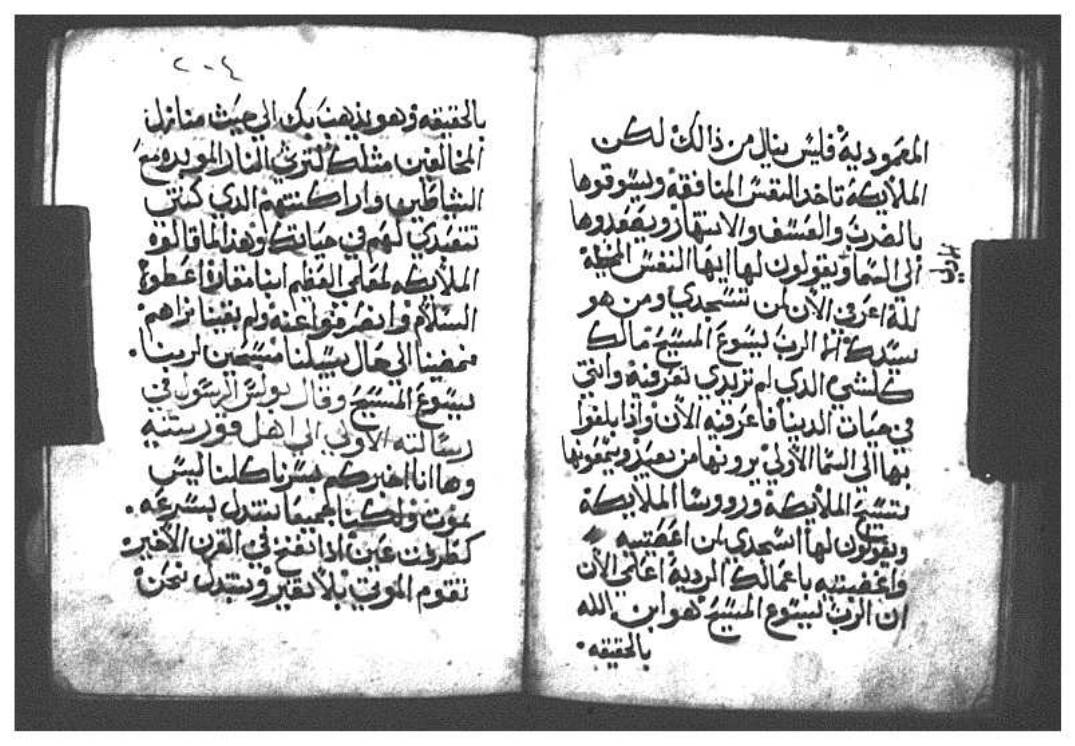 المعموديه فليس ينال من ذالك لكن
الملايكه تاخد النفس المنافقه ويسوقوها
بالضرب والعسف والانتهار ويصعدوها
الي السما ويقولون لها ايها النفس
اعرفي الان لمن تسجدي ومن هو
سيدك الرب يسوع المسيح مالك
كلشي الدي لم تريدي تعرفيه وانتي
في حيات الدنيا فاعرفيه الان وادا بلغوا
بها الي السما الاولي يرونها من بعيد
تسبيح الملايكة ورووسا الملايكة
ويقولون لها اسجدي لمن اغضبتيه
واغضبتيه باعمالك الرديه اعلمي الان
ان الرب ليسوع المسيح هو ابن الله
بالحقيقه
٢٠٤
بالحقيقه وهو يذهب بك الي حيث منازل
المخالفين مثلك لتري النار الموبده مع
الشياطين واراكنتهم الدي كنتي
تتعبدي لهم في حياتك وهدا ما قالوه
الملايكه لمعلمي العظيم انبا مقار واعطوه
السلام وانصرفوا عنه ولم بقينا نراهم
فمضينا الي حال سبيلنا مسبحين لربنا
ليسوع المسيح وقال بولس الرسول في
رسالته الاولي الي اهل قورنتيه
وها انا اخبركم بسر ما كلنا ليس
نموت ولكننا جميعا نتبدل بسرعه
كطرفت عين ادا نفخ في القرن الاخير
تقوم الموتي بلا تغير ونتبدل نحن